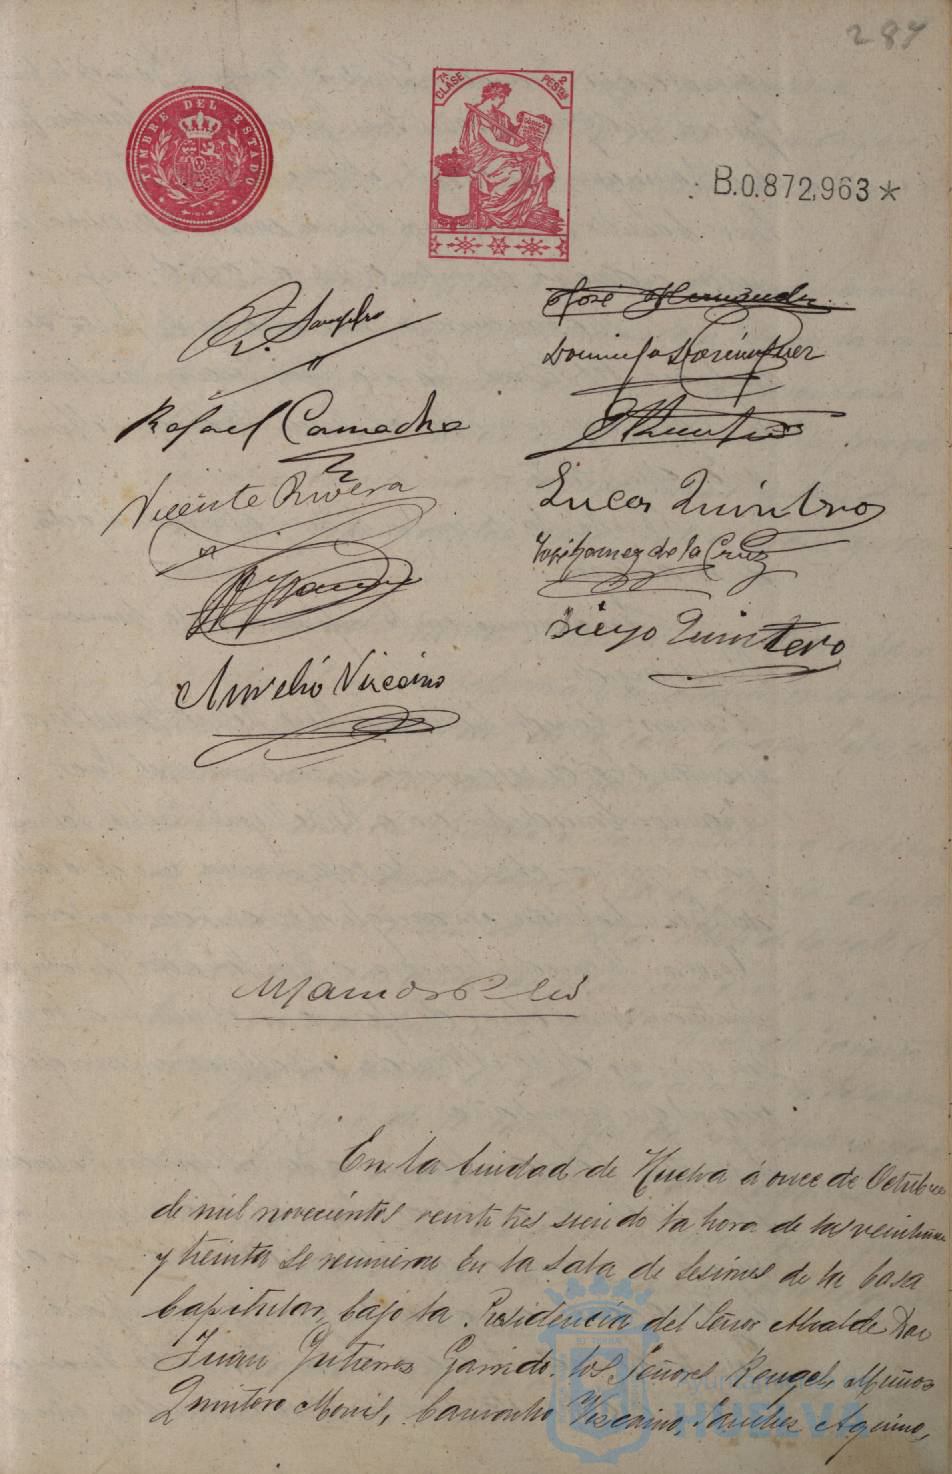 287
TIMBRE DEL ESTADO
7ª CLASE 2 PESETAS
B.0.872,963*
José Hernández
Domingo Domínguez
Rafael Camacho
Vicente Rivera
Lucas Quintero
José Gomez de la Cruz
Diego Quintero
Aurelio Viscaino
En la Ciudad de Huelva á once de Octubre
de mil novecientos veinte tres siendo la hora de las veintiuna
y treinta se reunieron en la Sala de Sesiones de la Casa
Capitular, bajo la Presidencia del Señor Alcalde Don
Juan Gutierrez Garrido los Señores Rengel, Muñoz
Quintero Moris, Camacho Viscaino, Sanchez Aquino,
HUELVA